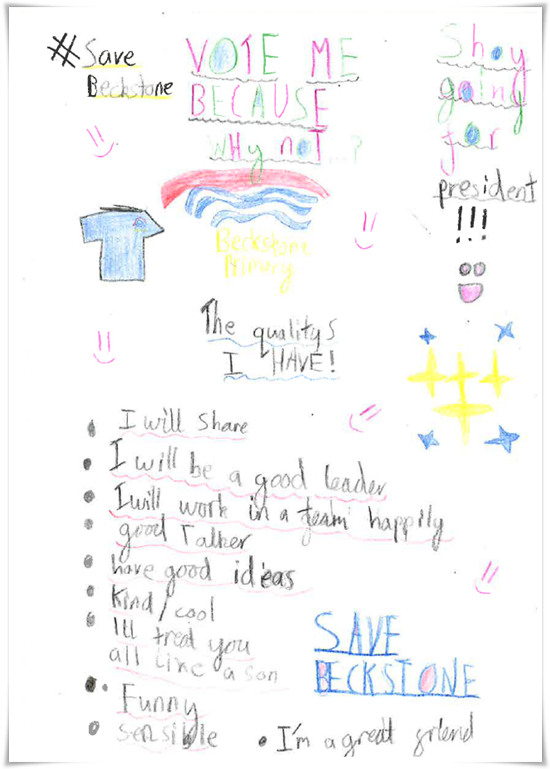 #Save
Beckstone
VOTE ME
BECAUSE
WHy noT...?
Shay
going
for
president
!!!
Beckstone
Primary
The qualitys
I HAVE!
• I will share
• I will be a good leader
• I will work in a team happily
• good Talker
• have good ideas
• Kind/cool
• Ill treat you
all like a son
• Funny
• sensible
SAVE
BECKSTONE
• I'm a great friend